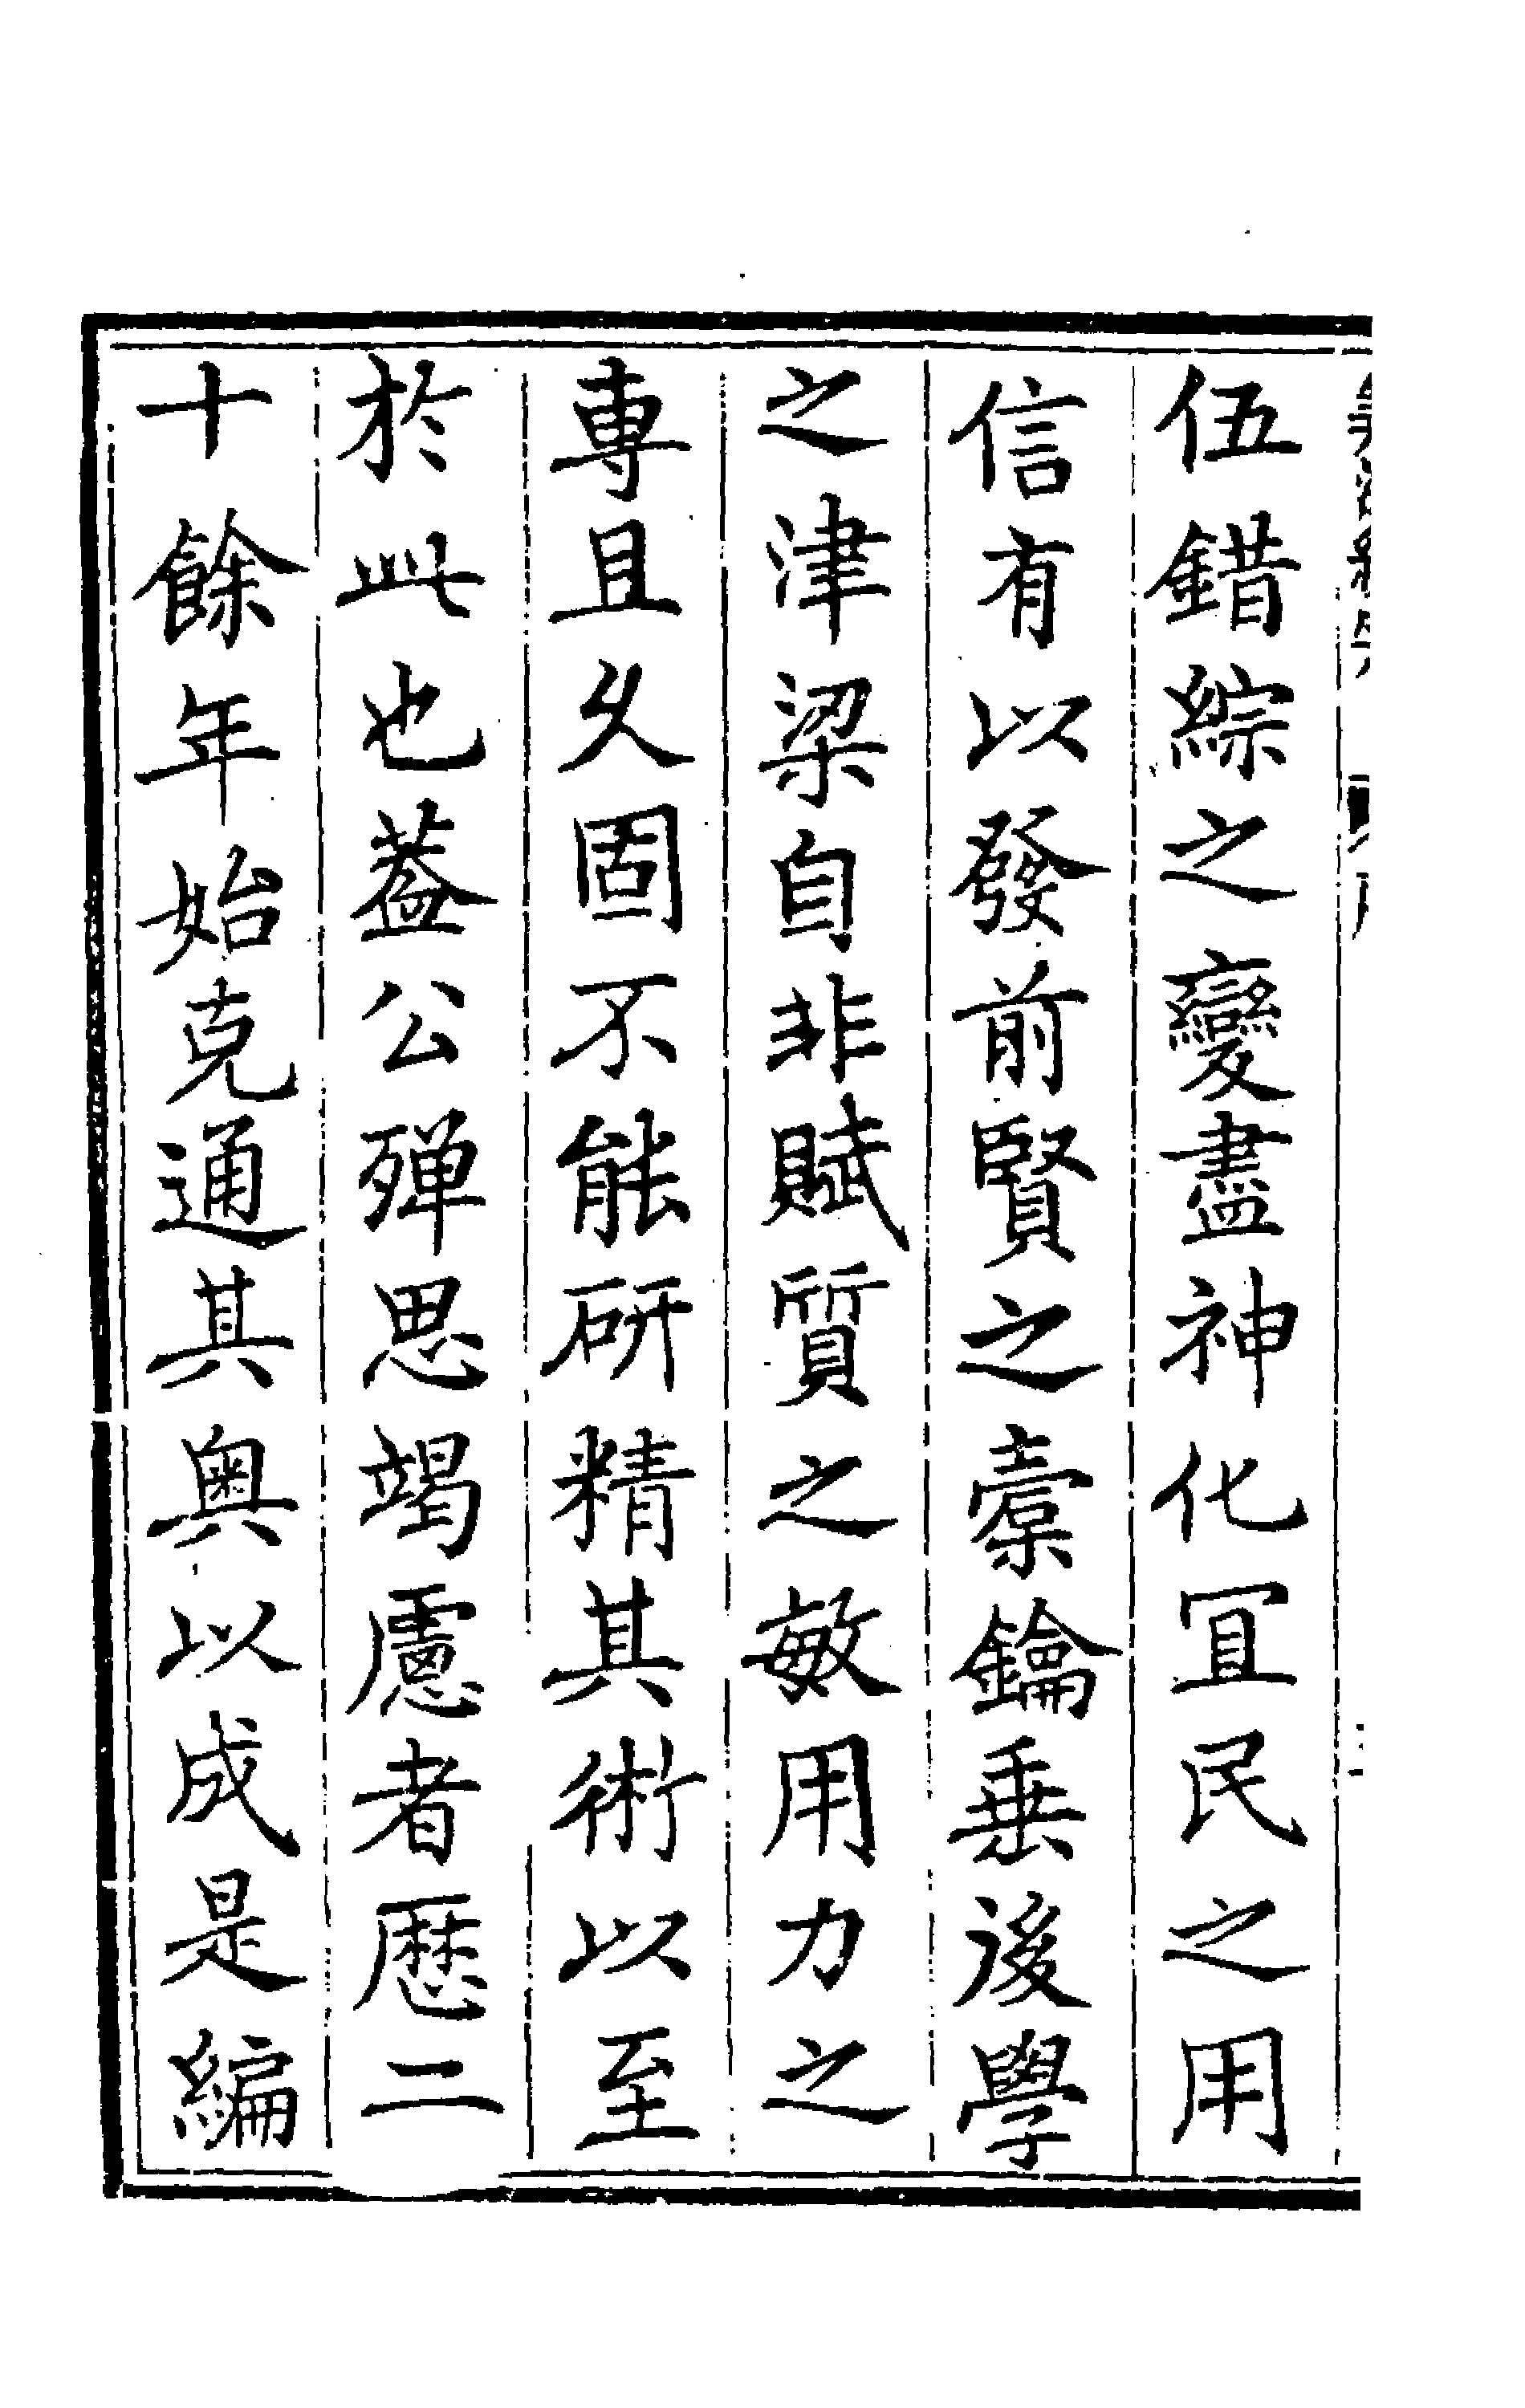 伍錯綜之變盡神化冝民之用
信有以發前賢之槖鑰垂後學
之津梁自非賦質之敏用力之
專且久固不能研精其術以至
於此也葢公殫思竭慮者歷二
十餘年始克通其奧以成是編